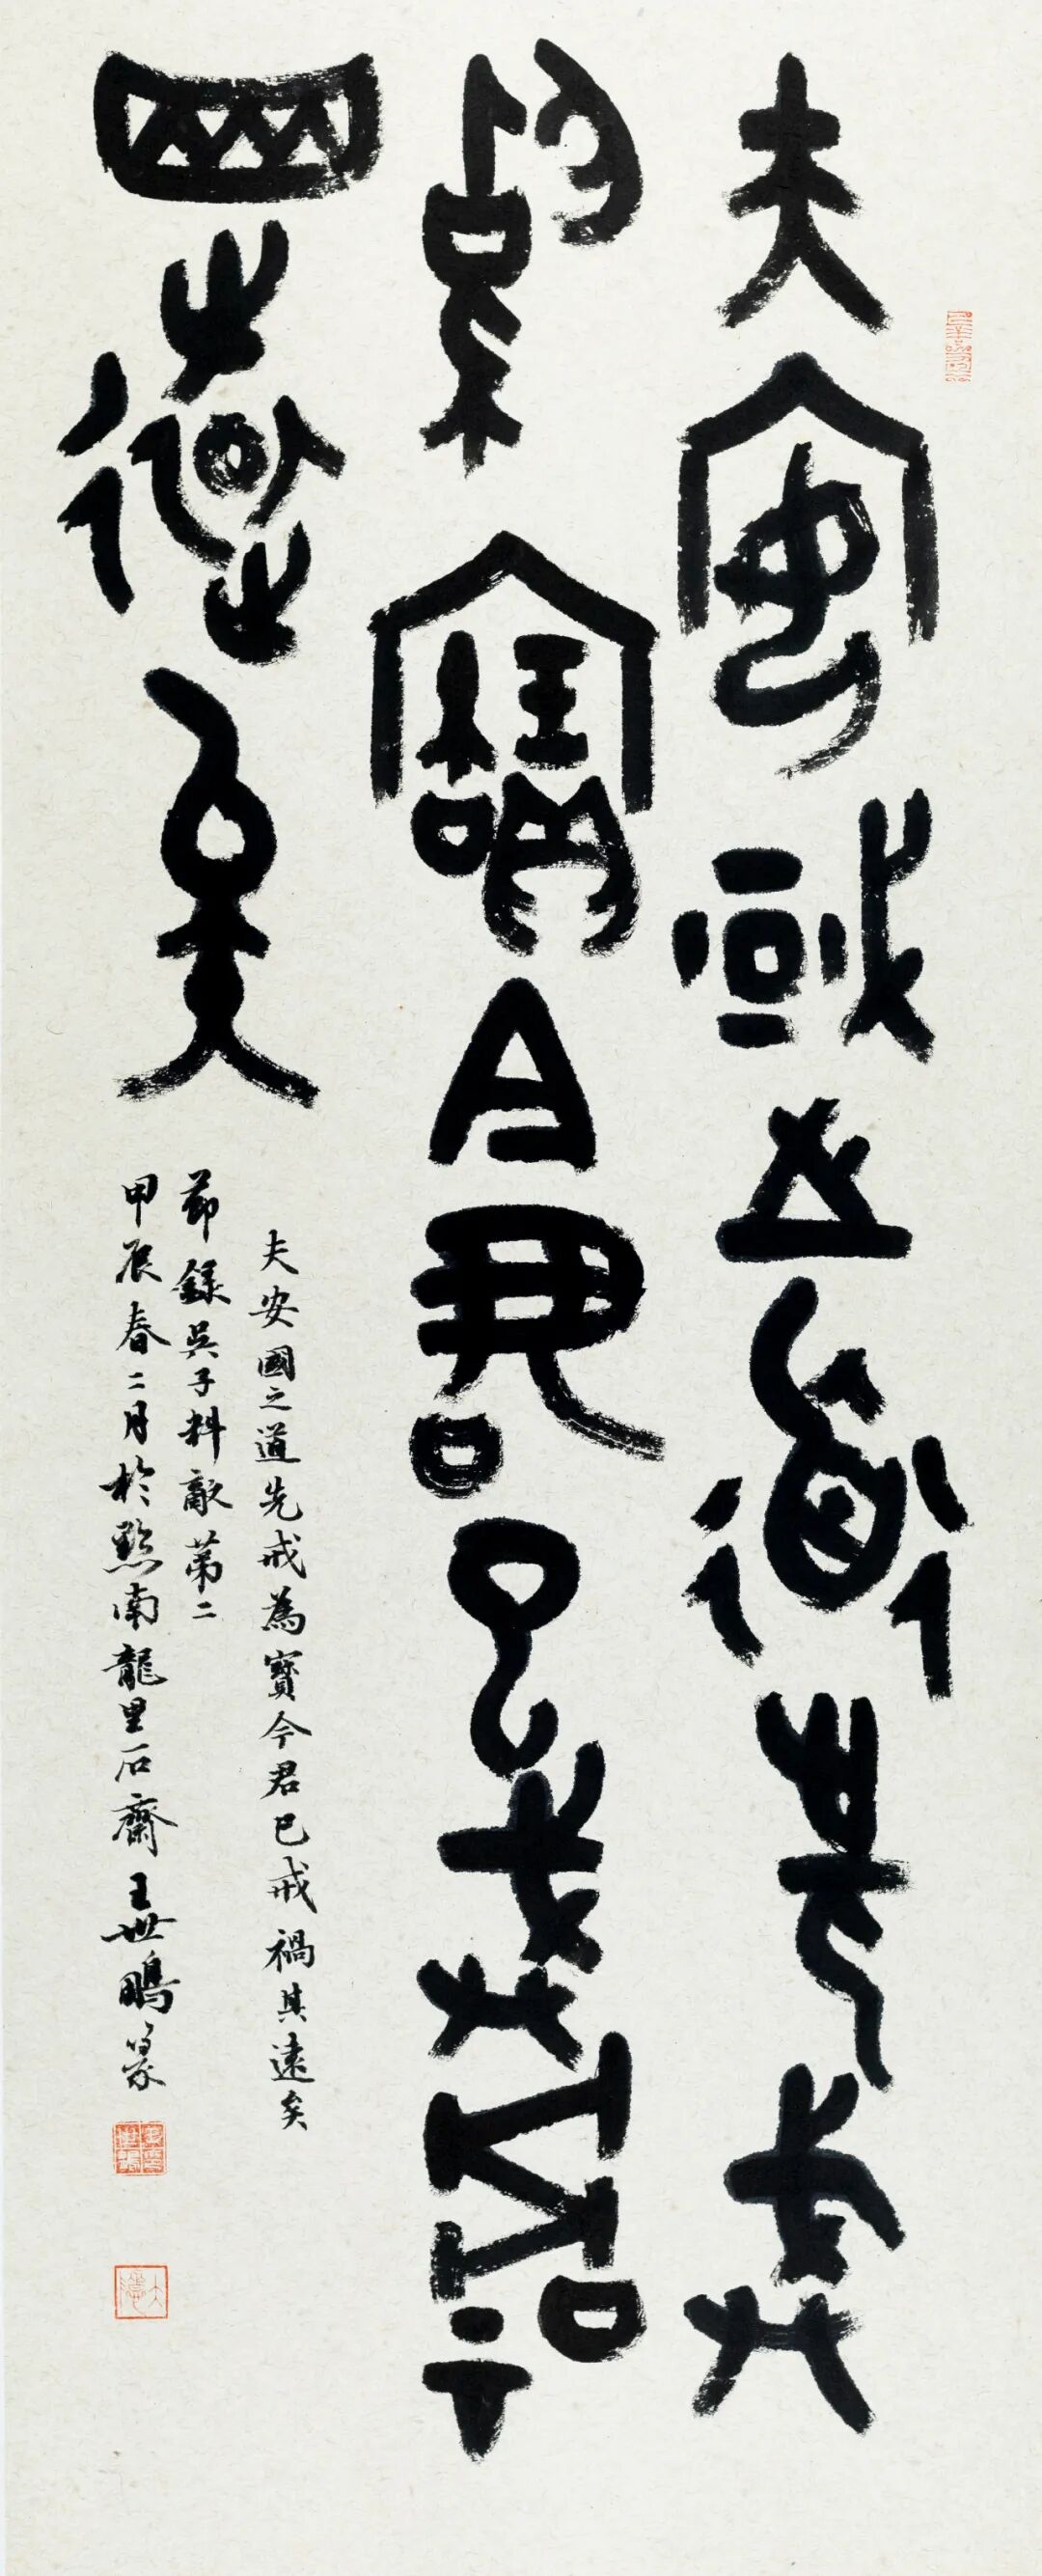 夫安國之道先戒
為寶今君已戒禍
其遠矣
夫安國之道先戒為寶今君已戒禍其遠矣
節錄吳子料敵第二
甲辰春二月於黔南龍里石齋王世鵬篆